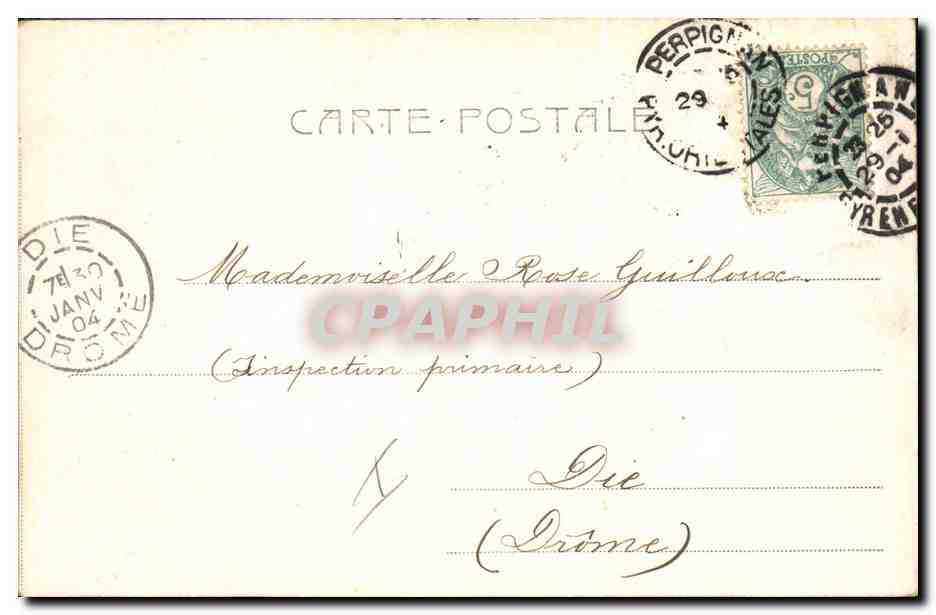 CARTE POSTALE
PERPIGNAN
29
4
PYR. ORIENTALES
POSTES
5c
PERPIGNAN
3 25
29 - 1
04
PYRENEES
DIE
7E 30
JANV
04
DRÔME
Mademoiselle Rose Guilloux
CPAPHIL
(Inspection primaire)
Die
(Drôme)